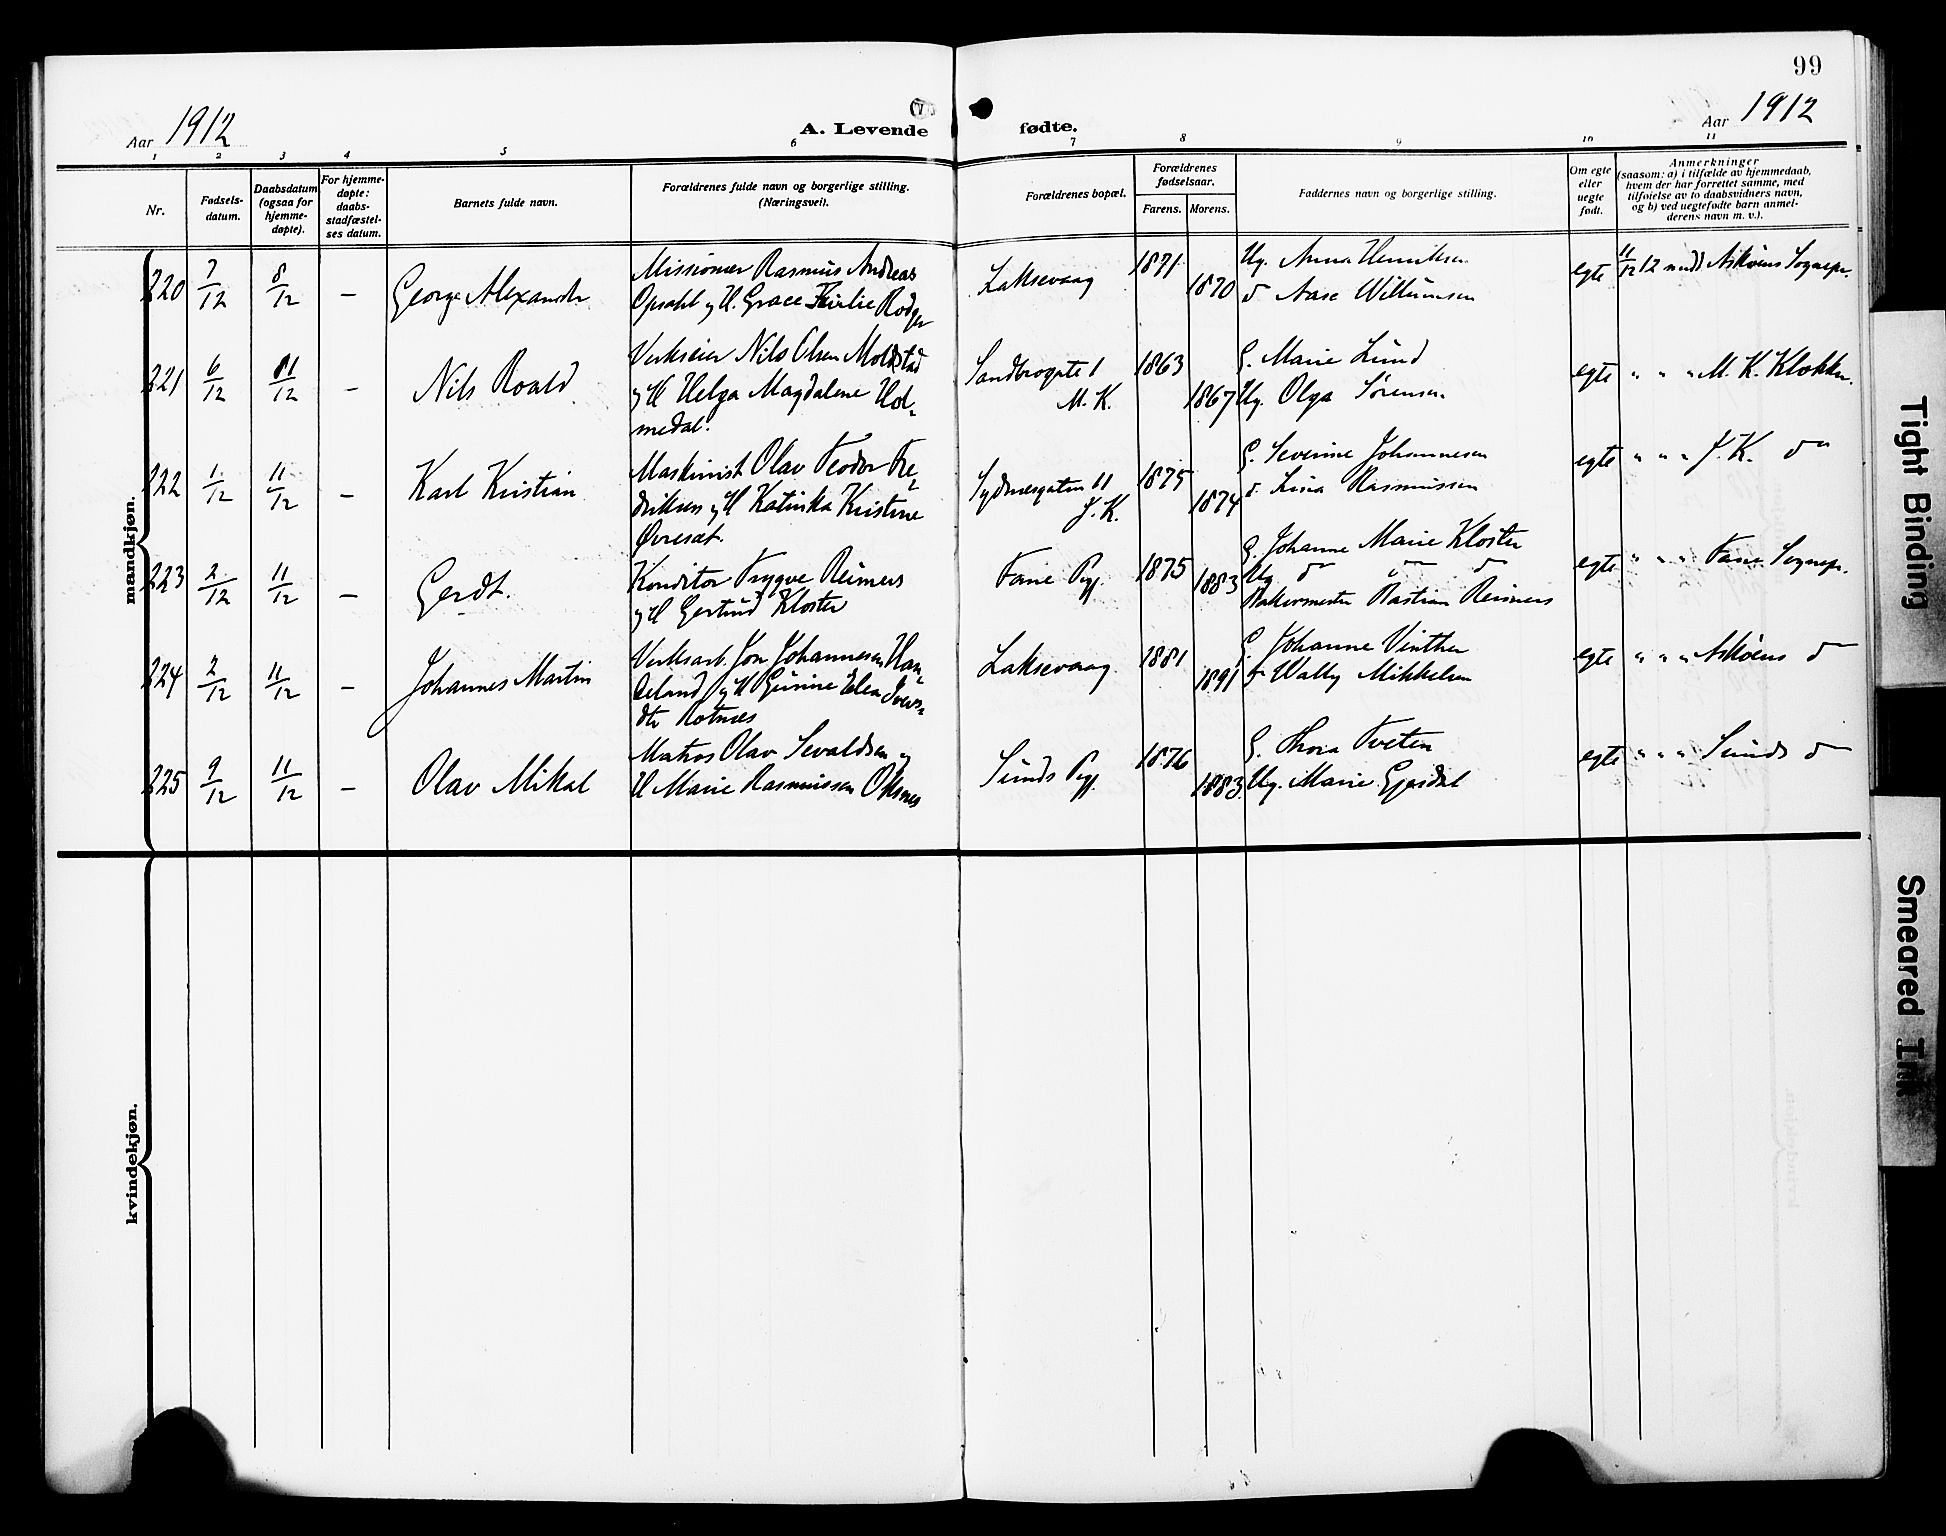 99
Aar 1912
A. Levende fødte.
Aar 1912
1 2 3 4 5 6 7 8 9 10 11
Nr.
Fødsels-
datum.
Daabsdatum
(ogsaa for
hjemme-
døpte).
For hjemme-
døpte:
daabs-
stadfæstel-
ses datum.
Barnets fulde navn.
Forældrenes fulde navn og borgerlige stilling.
(Næringsvei).
Forældrenes bopæl.
Forældrenes
fødselsaar.
Farens. Morens.
Faddernes navn og borgerlige stilling.
Om egte
eller
uegte
født.
Anmerkninger
(saasom: a) i tilfælde av hjemmedaab,
hvem der har forrettet samme, med
tilføielse av to daabsvidners navn,
og b) ved uegtefødte barn anmel-
derens navn m. v.).
mandkjøn.
220 7/12 8/12 – George Alexander
Missionær Rasmus Andreas
Opsahl og H. Grace Fairlie Rodger
Laksevaag 1871 1870
Ug. Anna Henriksen
do Aase Willumsen
egte 11/12 12 meldt Askøens Sognepr.
221 6/12 11/12 – Nils Roald
Verkseier Nils Olsen Moldstad
og H Helga Magdalene Hol-
medal.
Sandbrogate 1
M. K.
1863 1867
G. Marie Lund
Ug. Olga Sørensen
egte " " " M. K. Klokker.
222 1/12 11/12 – Karl Kristian
Maskinist Olav Teodor Fre-
driksen og H Katinka Kristine
Øvresæt.
Sydnesgaten 11
J. K.
1875 1874
G. Severine Johannesen
do Lina Rasmussen
egte " " " J. K. do
223 2/12 11/12 – Gerdt.
Konditor Trygve Reimers
og H Gertrud Kloster
Fane Pgj. 1875 1883
G. Johanne Marie Kloster
Ug do do do
Bakermester Bastian Reimers
egte " " " Fane Sognepr.
224 2/12 11/12 – Johannes Martin
Verksarb. Jon Johannesen Hau-
geland og H Gurine Elea Ivers-
dtr Rotnes
Laksevaag 1881 1891
G. Johanne Vinther
do Wally Mikkelsen
egte " " " Askøens do
225 9/12 11/12 – Olav Mikal
Matros Olav Sevaldsen og
H Marie Rasmussen Oksnes
Sunds Pgj. 1876 1883
G. Thora Tveten
Ug. Marie Gjesdal
egte " " " Sunds do
kvindekjøn.
Tight Binding
Smeared Ink